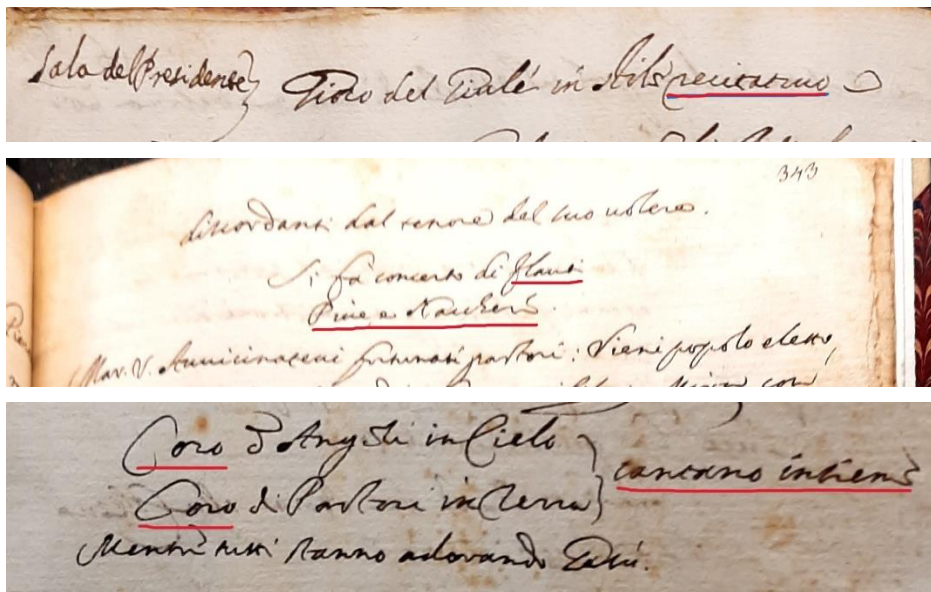 Sala del Presidense} in stile recitativo
343
discordanti dal tenore del tuo volere.
Si fà concerto di flauti
Pive e Nacheri.
Mar. V. Avvicinatevi fortunati pastori: Vieni popolo eletto,
Coro d'Angeli in Cielo } cantano insieme
Coro di Pastori in Terra }
Mentre tutti stanno adorando Giesù.